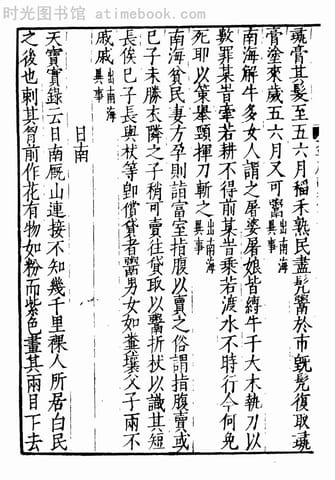 时光图书馆 - atimebook.com
彘膏其髮至五六月稻禾熟民盡髡鬻於市既髡復取彘
膏塗來歲五六月又可鬻出南海異事
南海解牛多女人謂之屠婆屠娘皆縛牛于大木執刀以
數罪某旹牽若耕不得前某旹乘若渡水不時行今何免
死耶以策舉頸揮刀斬之出南海異事
南海貧民妻方孕則詣富室指腹以賣之俗謂指腹賣或
己子未勝衣隣之子稍可賣往貸取以鬻折杖以識其短
長俟己子長與杖等即償貸者鬻男女如糞壤父子兩不
戚戚出南海異事
日南
天寶實錄云日南厩山連接不知幾千里裸人所居白民
之後也刺其胷前作花有物如粉而紫色畫其兩目下去